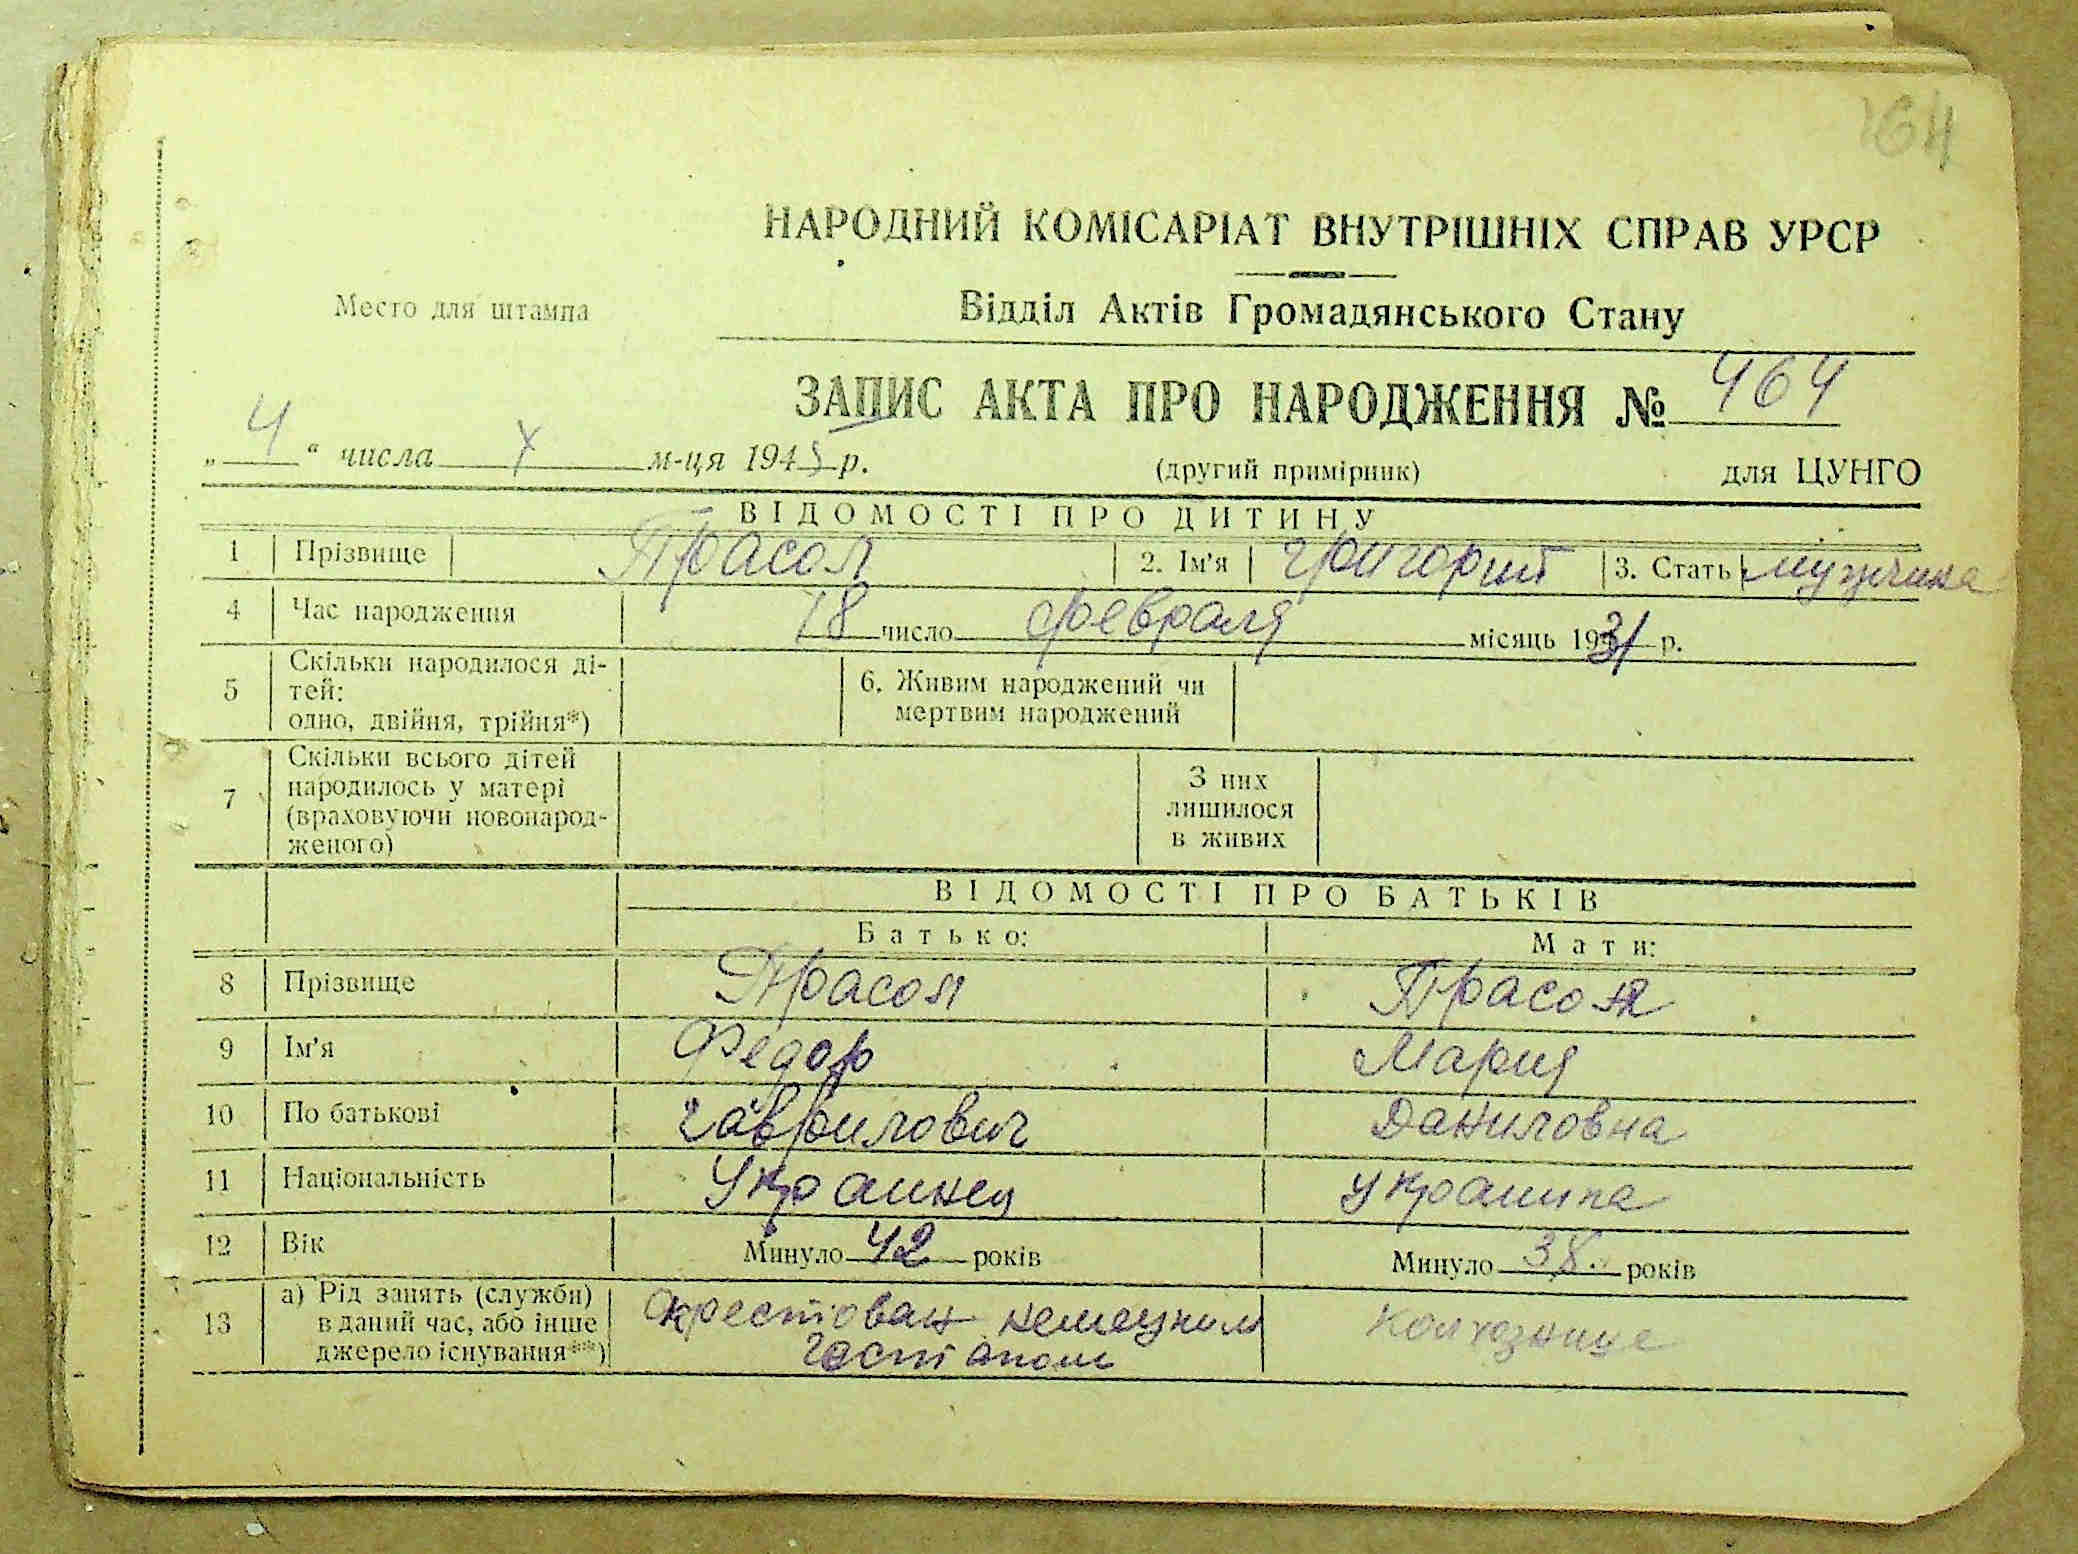 164
НАРОДНИЙ КОМІСАРІАТ ВНУТРІШНІХ СПРАВ УРСР
Место для штампа
Відділ Актів Громадянського Стану
ЗАПИС АКТА ПРО НАРОДЖЕННЯ № 464
„ 4 “ числа X м-ця 1945 р. (другий примірник) для ЦУНГО
ВІДОМОСТІ ПРО ДИТИНУ
1 Прізвище Прасол 2. Ім'я Григорий 3. Стать мужчина
4 Час народження 18 число февраля місяць 1931 р.
5 Скільки народилося ді-
тей:
одно, двійня, трійня*)
6. Живим народжений чи
мертвим народжений
7 Скільки всього дітей
народилось у матері
(враховуючи новонарод-
женого)
З них
лишилося
в живих
ВІДОМОСТІ ПРО БАТЬКІВ
Батько: Мати:
8 Прізвище Прасол Прасол
9 Ім'я Федор Мария
10 По батькові Гаврилович Даниловна
11 Національність Украинец украинка
12 Вік Минуло 42 років Минуло 38 років
13 а) Рід занять (служби)
в даний час, або інше
джерело існування**)
арестован немецким
гестапом
колхознице